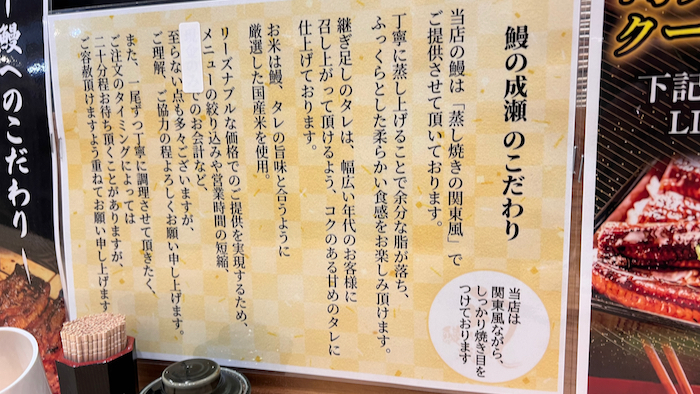 鰻の成瀬 のこだわり
当店の鰻は「蒸し焼きの関東風」で
ご提供させて頂いております。
丁寧に蒸し上げることで余分な脂が落ち、
ふっくらとした柔らかい食感をお楽しみ頂けます。
継ぎ足しのタレは、幅広い年代のお客様に
召し上がって頂けるよう、コクのある甘めのタレに
仕上げております。
お米は鰻、タレの旨味と合うように
厳選した国産米を使用。
リーズナブルな価格でのご提供を実現するため、
メニューの絞り込みや営業時間の短縮、
でのお会計など、
至らない点も多々ございますが、
ご理解、ご協力の程よろしくお願い申し上げます。
また、一尾ずつ丁寧に調理させて頂きたく、
ご注文のタイミングによっては
二十分程お待ち頂くことがありますが、
ご容赦頂けますよう重ねてお願い申し上げます
当店は
関東風ながら、
しっかり焼き目を
つけております
ー鰻へのこだわりー
クー
下記
LI